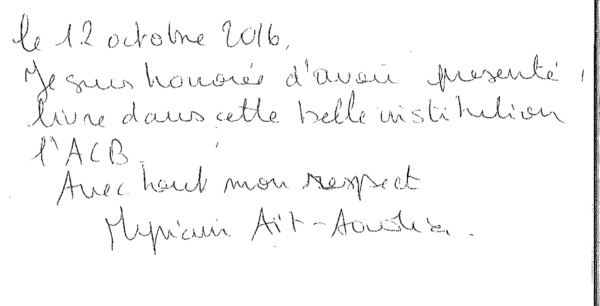 le 12 octobre 2016.
Je suis honorée d'avoir presenté
livre dans cette belle institution
l'ACB.
Avec tout mon respect
Myriam Aït-Aoudia.